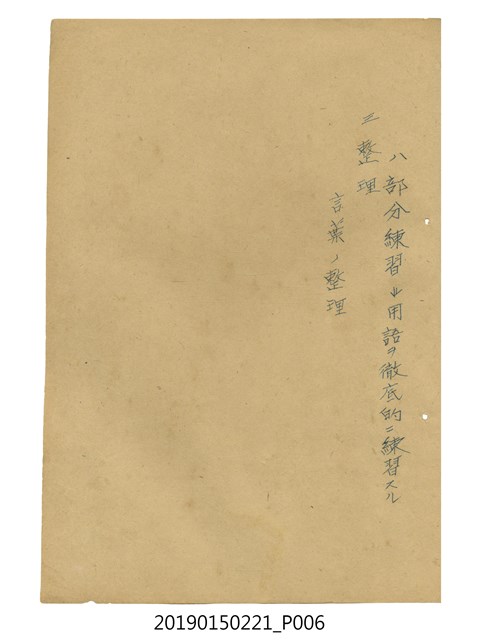 八部分練習 用語ヲ徹底的ニ練習スル
三 整理
言葉ノ整理
20190150221_P006